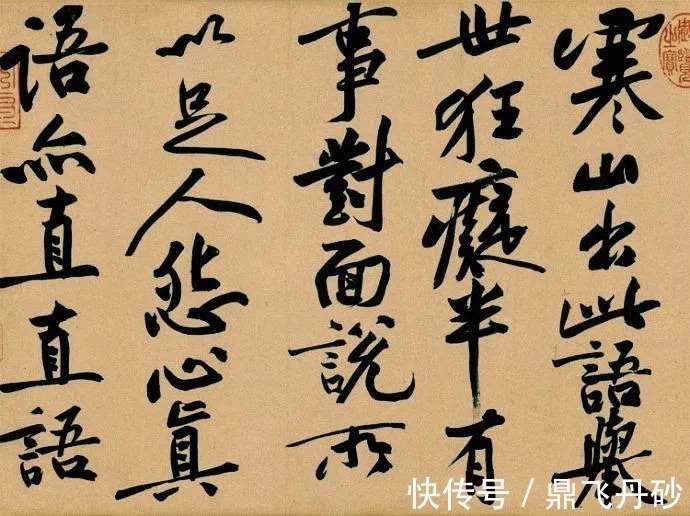 寒山出此語舉
世狂癡半有
事對面說所
以足人怨心真
語亦直直語
快传号 / 鼎飞丹砂